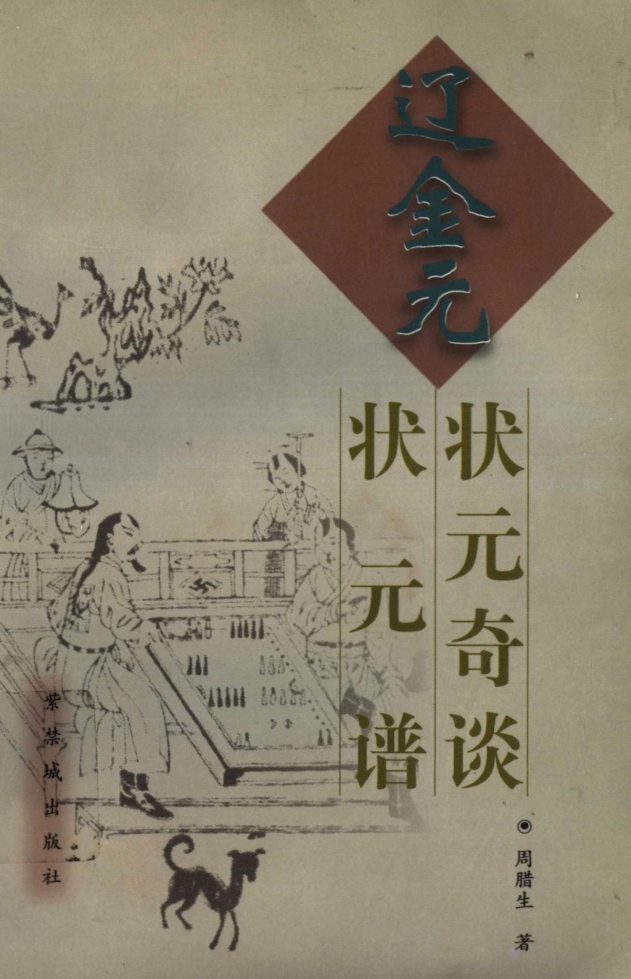 辽金元
状元奇谈
状元谱
周腊生 著
紫禁城出版社